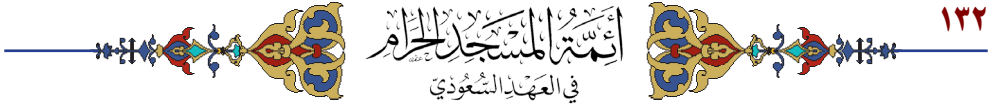 ١٣٢
أَئِمَّةُ المَسْجِدِ الحَرَامِ
في العَهْدِ السُّعُودِيّ